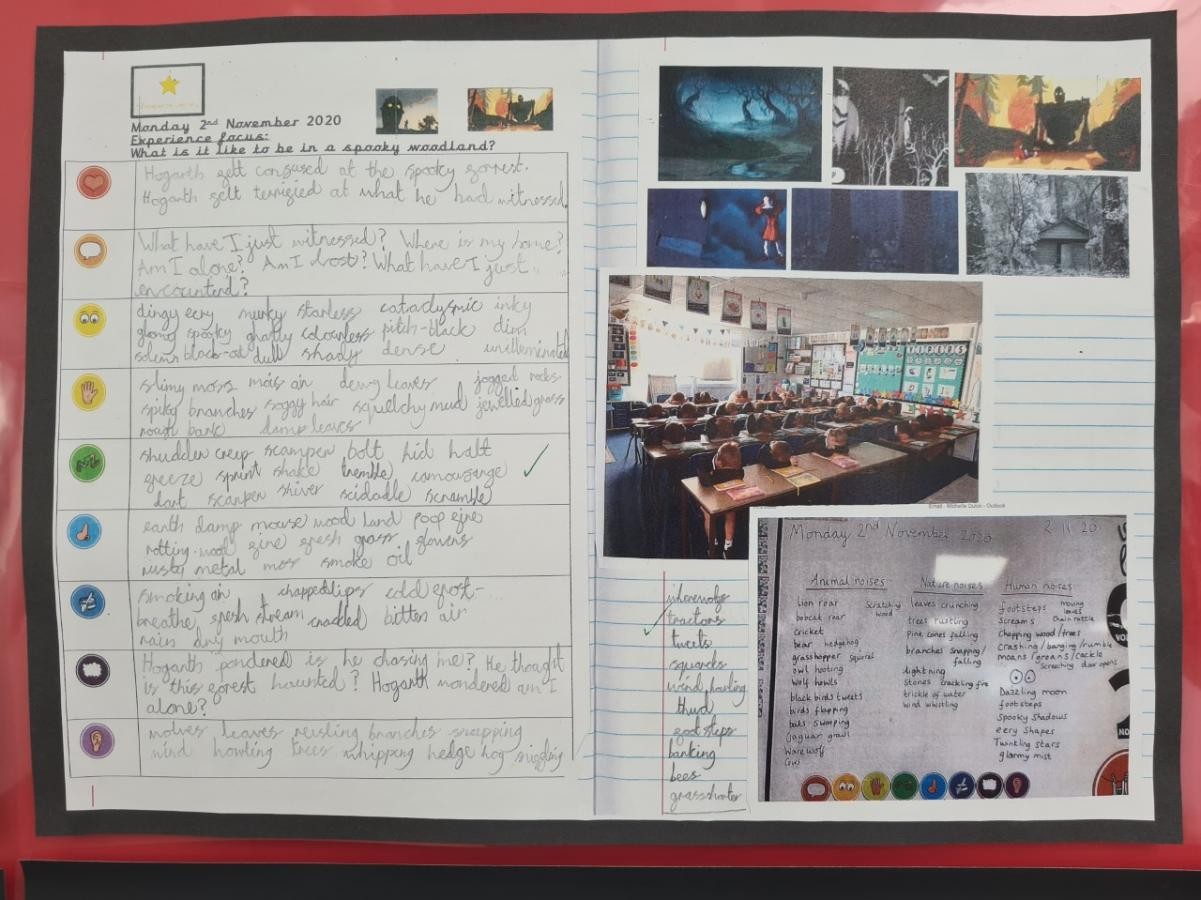 Monday 2nd November 2020
Experience focus:
What is it like to be in a spooky woodland?
Hogarth felt confused at the spooky forrest.
Hogarth felt terrified at what he had witnessed.
What have I just witnessed? Where is my home?
Am I alone? Am I lost? What have I just
encounterd?
dingy eery murky starless cataclysmic inky
glomy spooky ghastly colourless pitch-black dim
solemn black-out dull shady dense unilluminated
slimy moss mois air dewy leaves jagged rocks
spiky branches soggy hair squelchy mud jewelled grass
rough bark damp leaves
shudder creep scamper bolt hid halt
freeze sprint shake tremble camouflage
dart scarper shiver scidadle scramble
earth damp mouse wood land poop fire
rotting-wood fire fresh grass flowers
rusty metal moss smoke oil
smoking air chapped lips cold frost
breathe fresh stream cradled bitter air
rain dry mouth
Hogarth pondered is he chasing me? He thought
is this forest haunted? Hogarth wondered am I
alone?
wolves leaves rusling branches snapping
wind howling trees whipping hedge hog sniffling
tractors
tweets
squeaks
wind howling
thud
foot steps
barking
bees
Email - Michelle Quick - Outlook
Monday 2nd November 2020 2.11.20
Animal noises
Lion roar
bobcat roar
cricket
bear hedgehog
grasshopper squirrel
owl hooting
Wolf howls
black birds tweets
birds flapping
bats swooping
jaguar growl
Ware wolf
Cow
Scratching wood
Nature noises
leaves crunching
trees rustling
Pine cones falling
branches snapping/
falling
lightning
stones crackling fire
trickle of water
wind whistling
Human noises
footsteps moving leaves
Screams chain rattle
Chopping wood/trees
crashing/banging/rumble
moans/groans/cackle
Screeching door opens
Dazzling moon
footsteps
Spooky shadows
eery shapes
Twinkling stars
gloomy mist